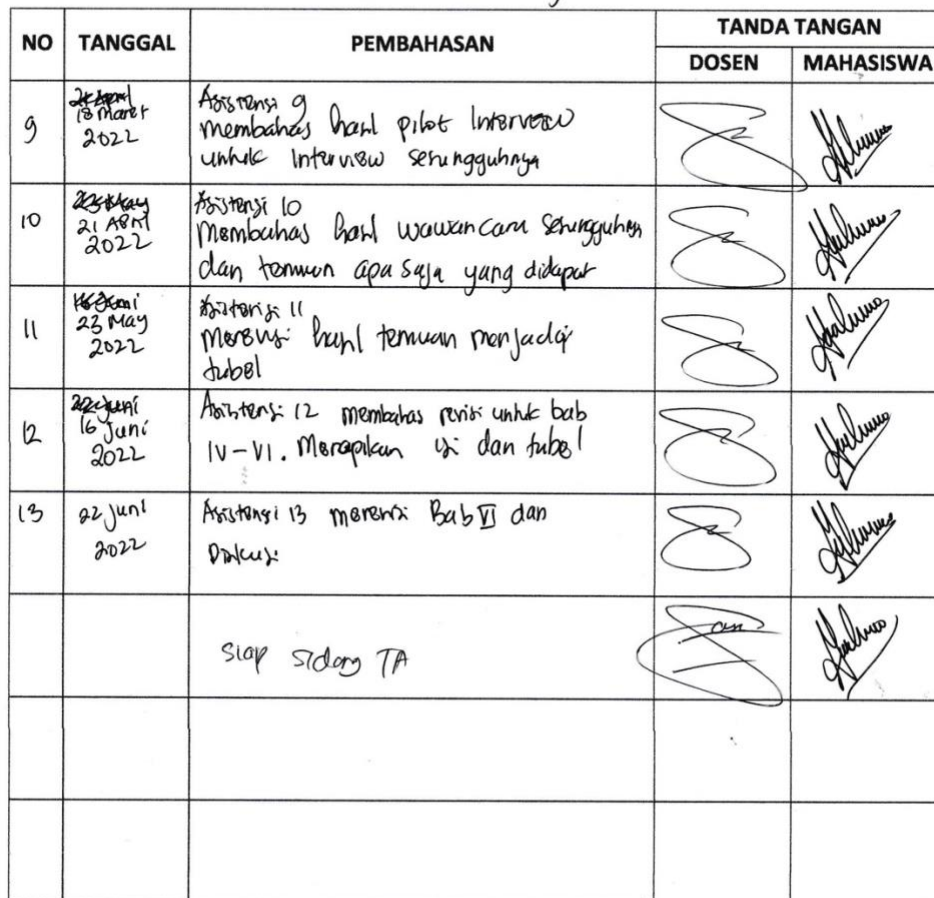 NO TANGGAL PEMBAHASAN TANDA TANGAN
DOSEN MAHASISWA
9 18 Maret 2022 Asistensi 9
membahas hasil pilot Interview
untuk Interview sesungguhnya
10 21 April 2022 Asistensi 10
Membahas hasil wawancara sesungguhnya
dan temuan apa saja yang didapat
11 23 May 2022 Asistensi 11
Merevisi hasil temuan menjadi
tabel
12 16 Juni 2022 Asistensi 12 membahas revisi untuk bab
IV-VI. Merapikan isi dan tabel
13 22 Juni 2022 Asistensi 13 merevisi Bab VI dan
Diskusi
Siap Sidang TA